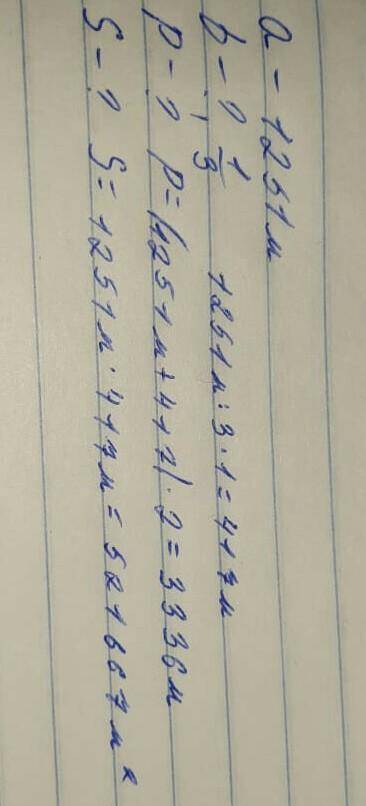 a - 1251 м
b - ? 1/3 1251 м : 3 · 1 = 417 м
P - ? P = (1251 м + 417) · 2 = 3336 м
S - ? S = 1251 м · 417 м = 521667 м²